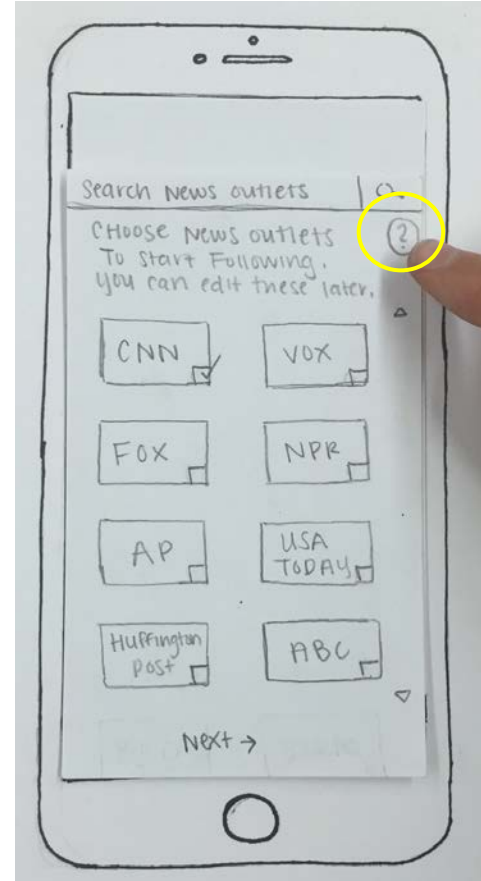 Search News outlets
CHOOSE News outlets
To start Following.
you can edit these later.
?
CNN
VOX
FOX
NPR
AP
USA
TODAY
Huffington
Post
ABC
Next →